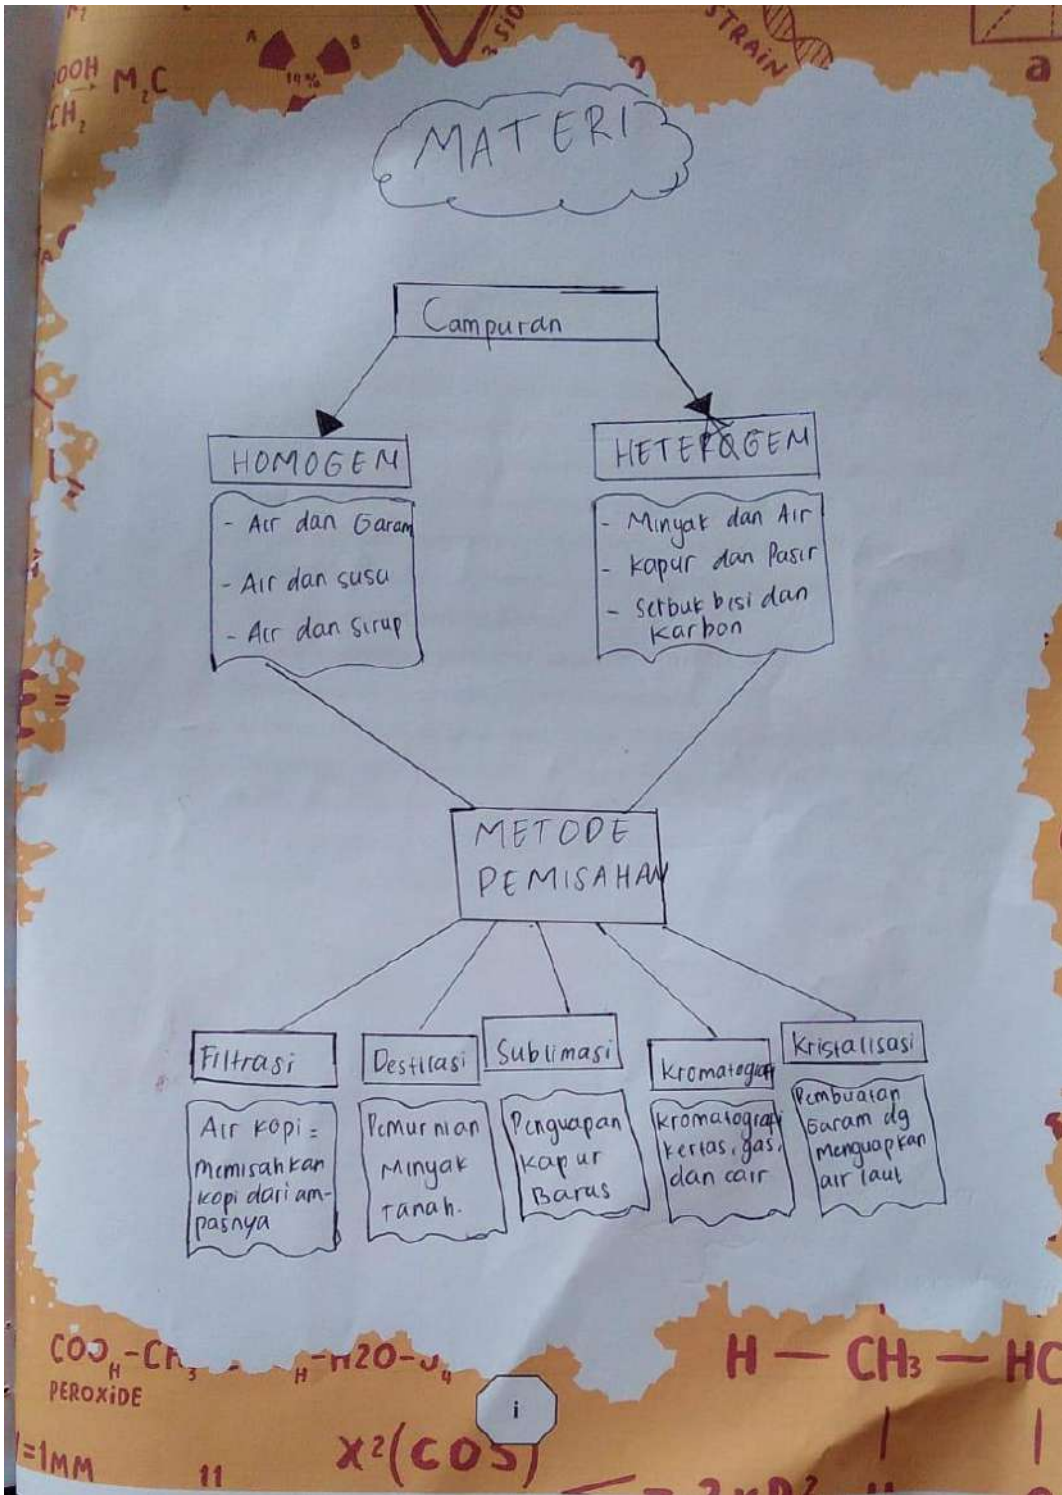 OOH
M₂C
CH₂
A
B
19%
3 SIO
STRAIN
a
MATERI
Campuran
HOMOGEN
- Air dan Garam
- Air dan susu
- Air dan sirup
HETEROGEN
- Minyak dan Air
- Kapur dan Pasir
- Serbuk besi dan
Karbon
METODE
PEMISAHAN
Filtrasi
Air kopi =
Memisahkan
kopi dari am-
pasnya
Destilasi
Pemurnian
Minyak
Tanah.
Sublimasi
Penguapan
Kapur
Barus
Kromatografi
Kromatografi
kertas, gas,
dan cair
Kristalisasi
Pembuatan
Garam dg
Menguapkan
air laut
H-H2O-
PEROXiDE
H — CH₃ — HC
i
=1MM
11
X²(COS)